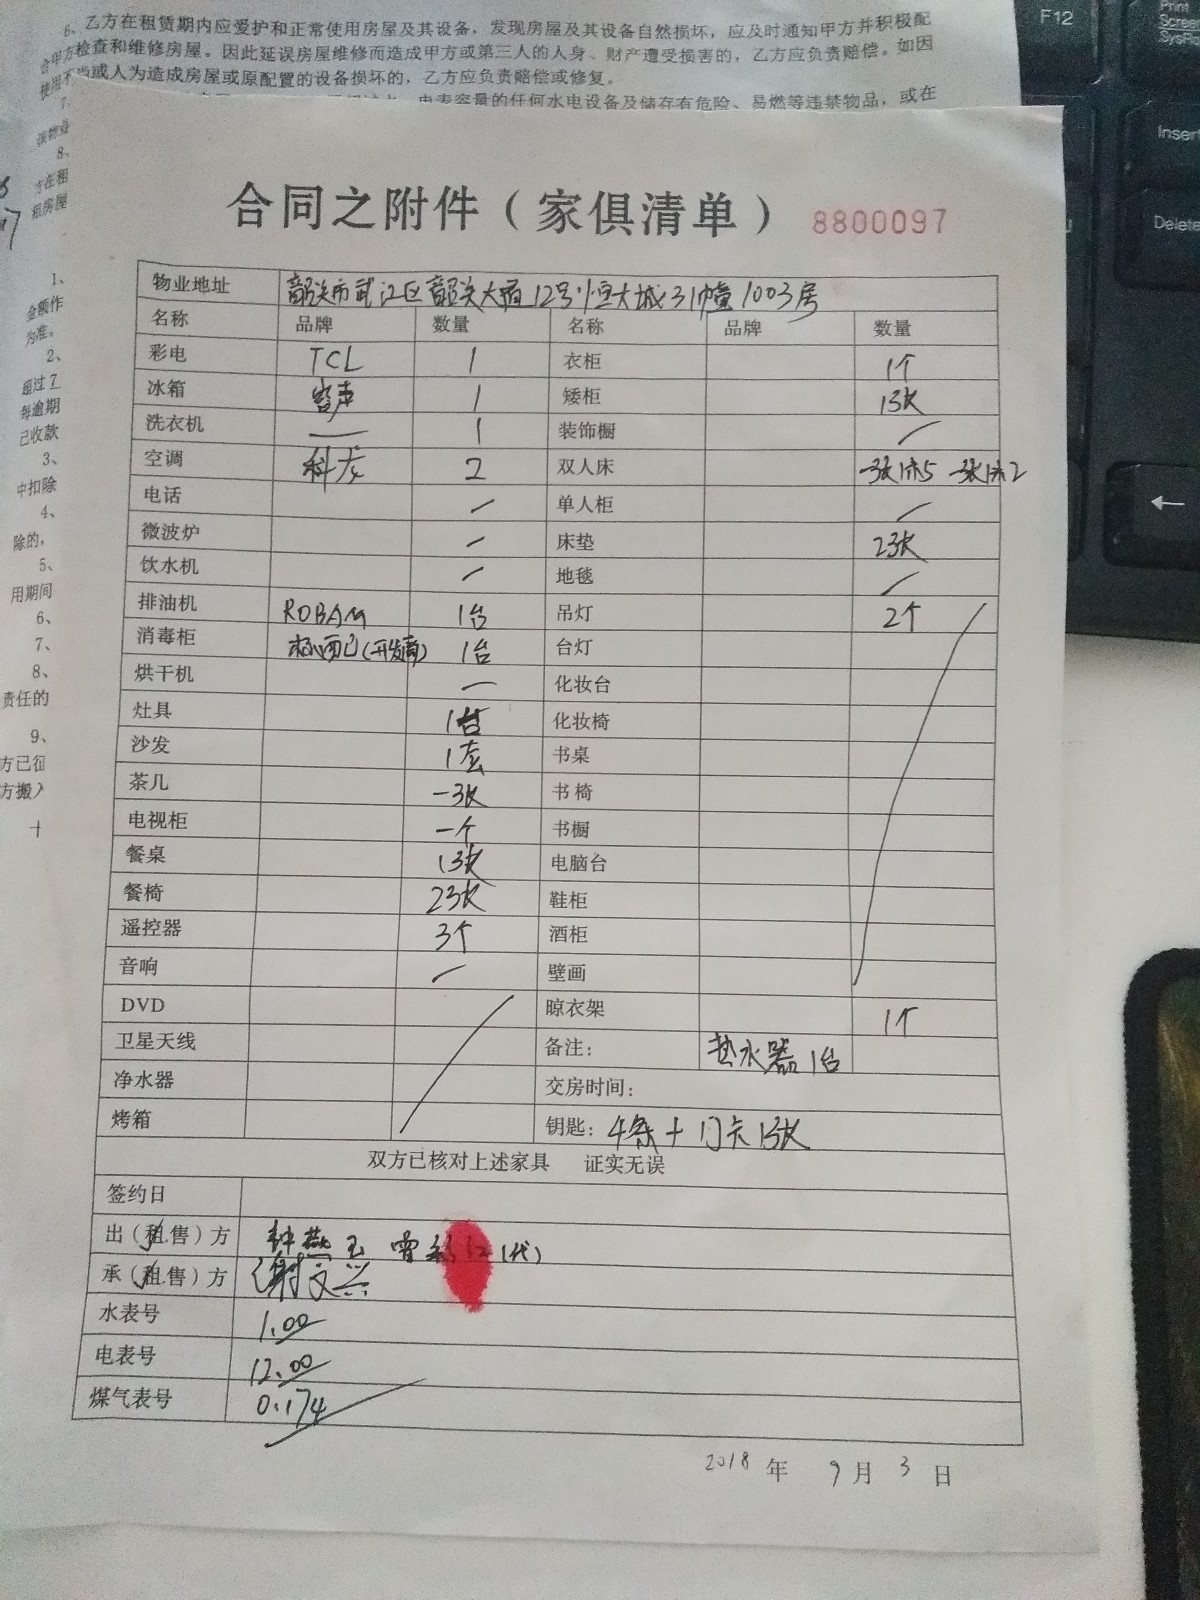 6、乙方在租赁期内应爱护和正常使用房屋及其设备，发现房屋及其设备自然损坏，应及时通知甲方并积极配
合甲方检查和维修房屋。因此延误房屋维修而造成甲方或第三人的人身、财产遭受损害的，乙方应负责赔偿。如因
使用不当或人为造成房屋或原配置的设备损坏的，乙方应负责赔偿或修复。
7、
电表容量的任何水电设备及储存有危险、易燃等违禁物品，或在
该物业
8、
方在租
租房屋
1、
金额作
为准。
2、
超过7
每逾期
已收款
3、
中扣除
4、
除的，
5、
用期间
6、
7、
8、
责任的
9、
方已
方搬入
F12
Print
Screen
SysRq
Insert
Delete
←
合同之附件（家俱清单） 8800097
物业地址 韶关市武江区韶关大道12号恒大城31幢1003房
名称 品牌 数量 名称 品牌 数量
彩电 TCL 1 衣柜 1个
冰箱 容声 1 矮柜 1张
洗衣机 — 1 装饰橱 /
空调 科龙 2 双人床 一张1米5 一张1米2
电话 / 单人柜 /
微波炉 / 床垫 2张
饮水机 / 地毯 /
排油机 ROBAM 1台 吊灯 2个
消毒柜 (开发商) 1台 台灯
烘干机 — 化妆台
灶具 1台 化妆椅
沙发 1套 书桌
茶几 一张 书椅
电视柜 一个 书橱
餐桌 1张 电脑台
餐椅 2张 鞋柜
遥控器 3个 酒柜
音响 / 壁画
DVD 晾衣架 1个
卫星天线 备注： 热水器1台
净水器 交房时间：
烤箱 钥匙：4条+门卡1张
双方已核对上述家具 证实无误
签约日
出（租.售）方 钟燕玉 (代)
承（租.售）方 谢文兴
水表号 1.00
电表号 12.00
煤气表号 0.174
2018年 9月3日